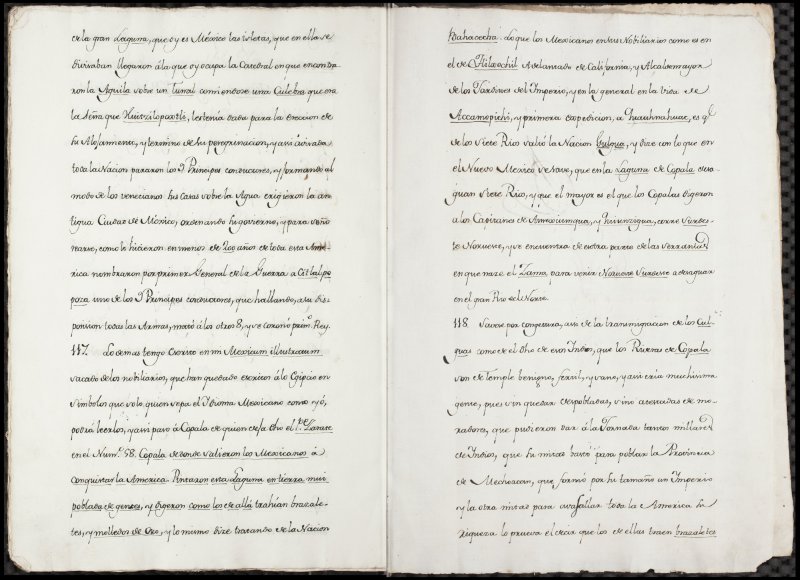 de la gran Laguna, que oy es Mexico las Isletas, que en ella se
divisaban llegaron á la que oy ocupa la Catedral en que encontra
ron la Aguila sobre un Tunal comiendose una Culebra que era
la seña que Huitzilopoxtli, les tenia dada para la ereccion de
su Alojamento, y termino de su peregrinacion, y assi arivada
toda la Nacion pararon los 9 Principes conductores, y formando al
modo de los venecianos sus casas sobre la Agua erigieron la an-
tigua Ciudad de Mexico, ordenando su govierno, y para seño
rearse, como lo hicieron en menos de 200 años de toda esta Ame-
rica nombraron por primer General de la Guerra a
poca uno de los 9 Principes conductores, que hallando, a su dis-
posicion todas las Armas, mató á los otros 8, y se coronó prim.º Rey.
117. Lo demas tengo escrito en mi Mexicum illustratum
sacado de los nobiliarios, que han quedado escritos á lo Egipcio en
Simbolos que solo quien sepa el Idioma Mexicano como yó,
podrá leerlos, y assi paso á Copala de quien dexa dho el P.e Zarate
en el Num.º 58. Copala de donde salieron los Mexicanos á
conquistar la America. Pintaron esta Laguna en tierra mui
poblada de gentes, y digeron como los de allá trahian brazale-
tes, y molledos de Oro, y lo mismo dize tratando de la Nacion
Bahacecha. Lo que los Mexicanos en sus Nobiliarios como es en
el de Adelantado de California, y Alcalde mayor
de los Jardines del Imperio, y en la general en la vida de
Accamopichi, y primera expedicion, a Quauhnahuac, es q.e
de los Siete Rios salió la Nacion Culgua, y dize con lo que en
el Nuevo Mexico se save, que en la Laguna de Copala desa-
guan Siete Rios, y que el mayor es el que los Copalas digeron
a los Capitanes de y corre Surdes-
te Norueste, y se encuentra de estotra parte de las Serranias
en que nace el Zama, para venir Norueste Surdeste a desaguar
en el gran Rio del Norte.
118. Savese por congetura, assi de la transmigracion de los Cul-
guas como de el dho de esos Indios, que los Riveras de Copala
son de Temple benigno, fertil, y sano, y assi cria muchissima
gente, pues sin quedar despobladas, sino atestadas de mo-
radores, que pudieron dar á la Jornada tantos millares
de Indios, que su mitad bastó para poblar la Provincia
de Mechoacan, que formó por su tamaño un Imperio
y la otra mitad para avasallar toda la America su
riqueza lo prueva el decir que los de ellas traen brazaletes